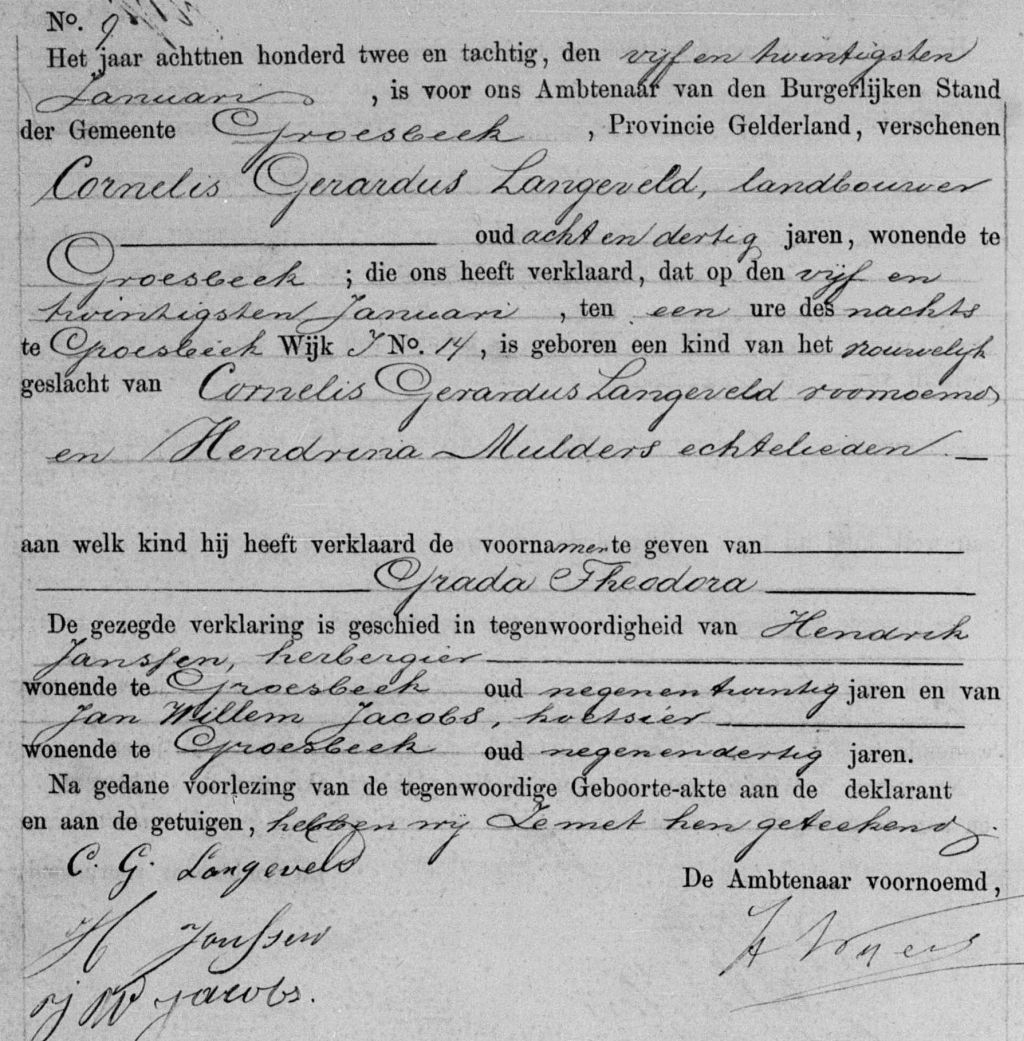 No. 9
Het jaar achttien honderd twee en tachtig, den vijf en twintigsten
Januari, is voor ons Ambtenaar van den Burgerlijken Stand
der Gemeente Groesbeek, Provincie Gelderland, verschenen
Cornelis Gerardus Langeveld, landbouwer
oud acht en dertig jaren, wonende te
Groesbeek; die ons heeft verklaard, dat op den vijf en
twintigsten Januari, ten een ure des nachts
te Groesbeek Wijk J No. 14, is geboren een kind van het vrouwelijk
geslacht van Cornelis Gerardus Langeveld voornoemd
en Hendrina Mulders echtelieden.
aan welk kind hij heeft verklaard de voornamen te geven van
Grada Theodora
De gezegde verklaring is geschied in tegenwoordigheid van Hendrik
Janssen, herbergier
wonende te Groesbeek oud negenentwintig jaren en van
Jan Willem Jacobs, koetsier
wonende te Groesbeek oud negenendertig jaren.
Na gedane voorlezing van de tegenwoordige Geboorte-akte aan de deklarant
en aan de getuigen, hebben wij Ze met hen geteekend.
C. G. Langeveld
De Ambtenaar voornoemd,
H Janssen
J W Jacobs.